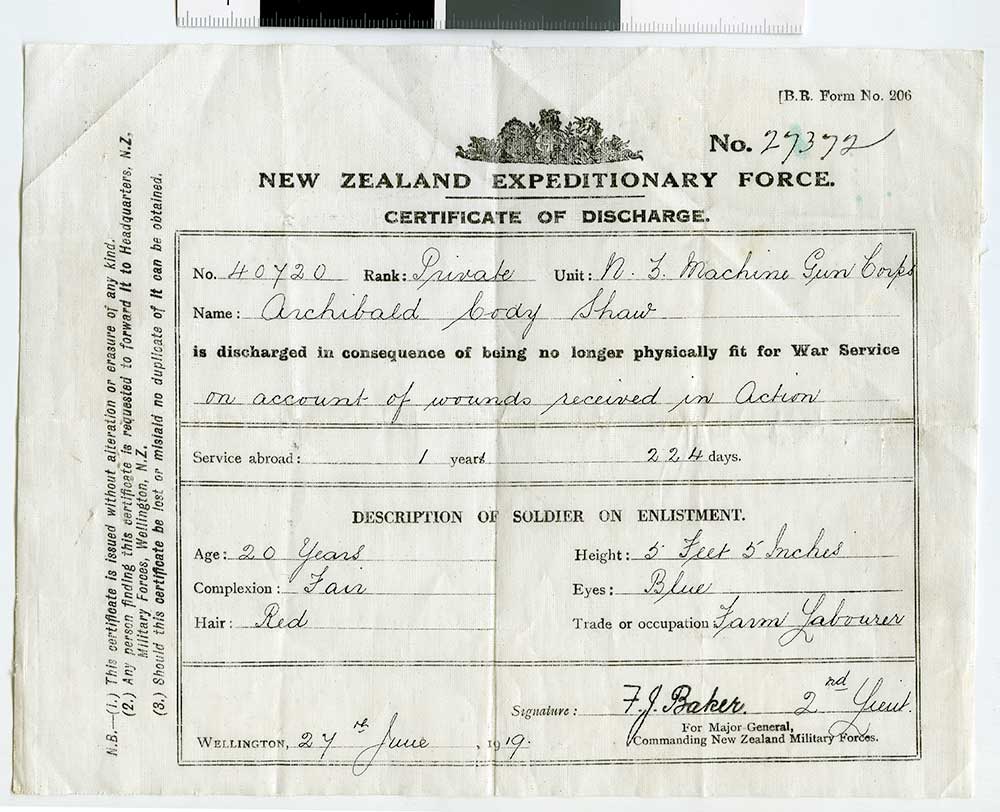 [B.R. Form No. 206
No. 27372
NEW ZEALAND EXPEDITIONARY FORCE.
CERTIFICATE OF DISCHARGE.
No. 40720 Rank: Private Unit: N. Z. Machine Gun Corps
Name: Archibald Cody Shaw
is discharged in consequence of being no longer physically fit for War Service
on account of wounds received in Action
Service abroad: 1 years 224 days.
DESCRIPTION OF SOLDIER ON ENLISTMENT.
Age: 20 Years Height: 5 Feet 5 Inches
Complexion: Fair Eyes: Blue
Hair: Red Trade or occupation Farm Labourer
Signature: F. J. Baker. 2nd Lieut.
For Major-General,
Commanding New Zealand Military Forces.
WELLINGTON, 27th June, 1919.
N.B.—(1.) This certificate is issued without alteration or erasure of any kind.
(2.) Any person finding this certificate is requested to forward it to Headquarters, N.Z.
Military Forces, Wellington, N.Z.
(3.) Should this certificate be lost or mislaid no duplicate of it can be obtained.